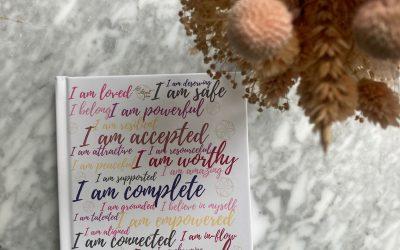 I am deserving
I am loved I am safe
I belong I am powerful
I am resilient
I am accepted
I am attractive I am resourceful
I am peaceful I am worthy
I am supported I am amazing
I am complete
I am grounded I believe in myself
I am talented I am empowered
I am aligned
I am connected I am in-flow